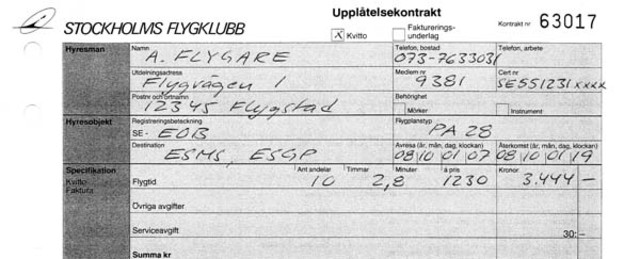 Upplåtelsekontrakt
STOCKHOLMS FLYGKLUBB
X Kvitto
Fakturerings-
underlag
Kontrakt nr 63017
Hyresman
Namn
A. FLYGARE
Telefon, bostad
073-7633031
Telefon, arbete
Utdelningsadress
Flygvägen 1
Medlem nr
9381
Cert nr
SE551231xxxx
Postnr och ortnamn
12345 Flygstad
Behörighet
Mörker
Instrument
Hyresobjekt
Registreringsbeteckning
SE - EOB
Flygplanstyp
PA 28
Destination
ESMS, ESGP
Avresa (år, mån, dag, klockan)
08 10 01 07
Återkomst (år, mån, dag, klockan)
08 10 01 19
Specifikation
Kvitto
Faktura
Flygtid
Ant andelar
10
Timmar
2,8
Minuter
à pris
1230
Kronor
3.444 -
Övriga avgifter
Serviceavgift
30:-
Summa kr